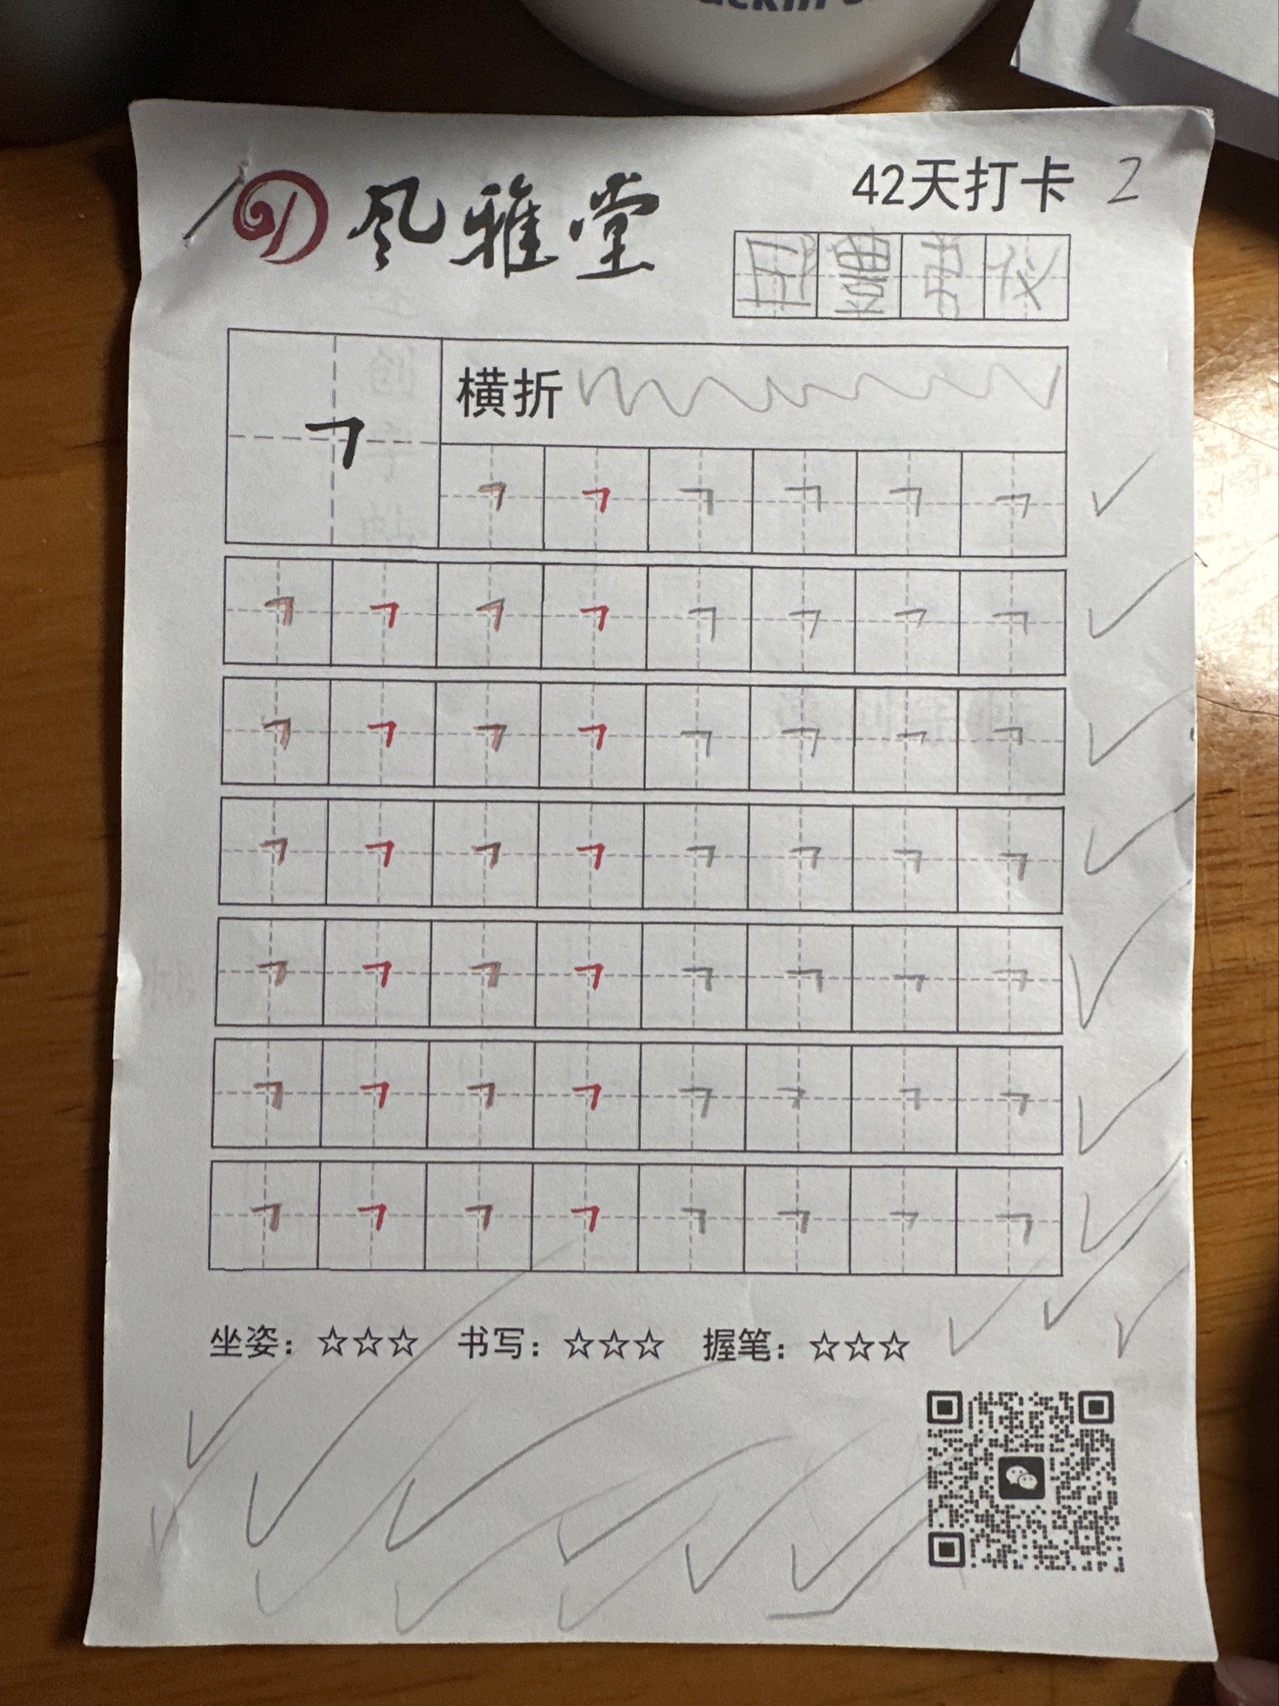 风雅堂
42天打卡 2
横折
坐姿：☆☆☆ 书写：☆☆☆ 握笔：☆☆☆